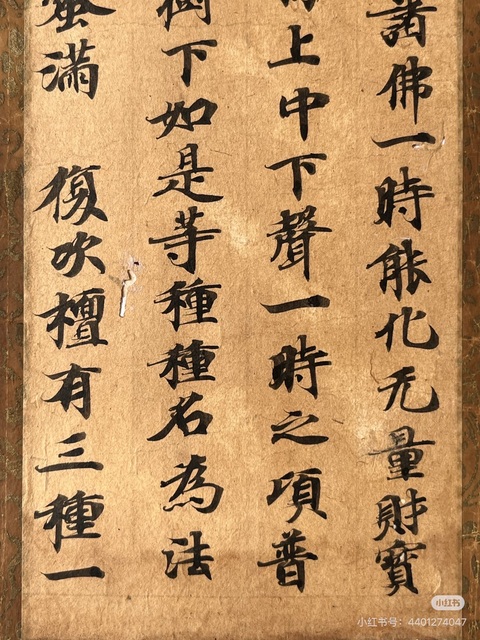 諸佛一時能化无量財寶
上中下聲一時之項普
樹下如是等種種名為法
蜜滿 復次檀有三種一
小红书
小红书号：4401274047